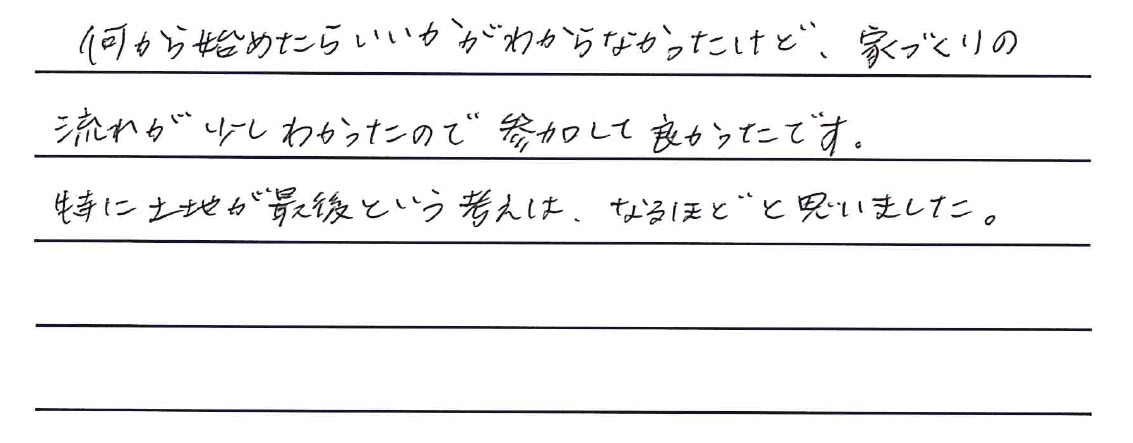 何から始めたらいいかがわからなかったけど、家づくりの
流れが少しわかったので参加して良かったです。
特に土地が最後という考えは、なるほどと思いました。